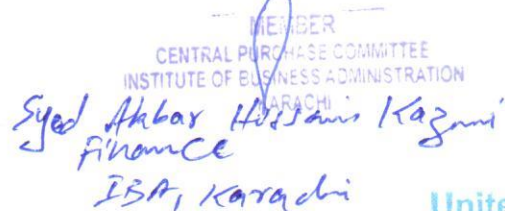 MEMBER
CENTRAL PURCHASE COMMITTEE
INSTITUTE OF BUSINESS ADMINISTRATION
KARACHI
Syed Akbar Hussain Kazmi
Finance
IBA, Karachi
Unite